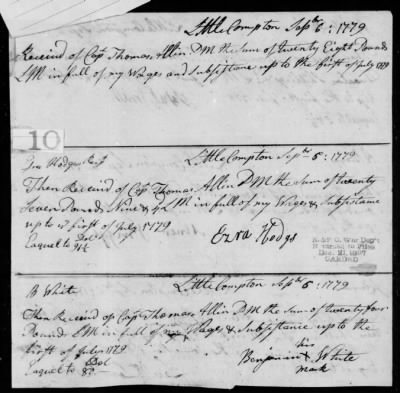 Little Compton Sept 6: 1779
Receivd of Cap Thomas Allin D M the Sum of twenty Eight Pounds
L M in full of my Wages and Subsistane up to the first of July 1779
10
Ezra Hodges
Little Compton Sept 5: 1779
Then Receivd of Cap Thomas Allin D M the Sum of twenty
Seven Pounds Nine & 4 L M in full of my Wages & Subsistane
up to ye first of July 1779
Eaquel to Dol
Ezra Hodgs
R & P O. War Dep't
Returned to Files
Dec 21 1907
CARDED
B White
Little Compton Sept 5: 1779
Then Receivd of Cap Thomas Allin D M the Sum of twenty four
Pounds L M in full of my Wages & Subsistance up to the
first of July 1779
Eaquel to Dol
80
his
Benjamin White
mark